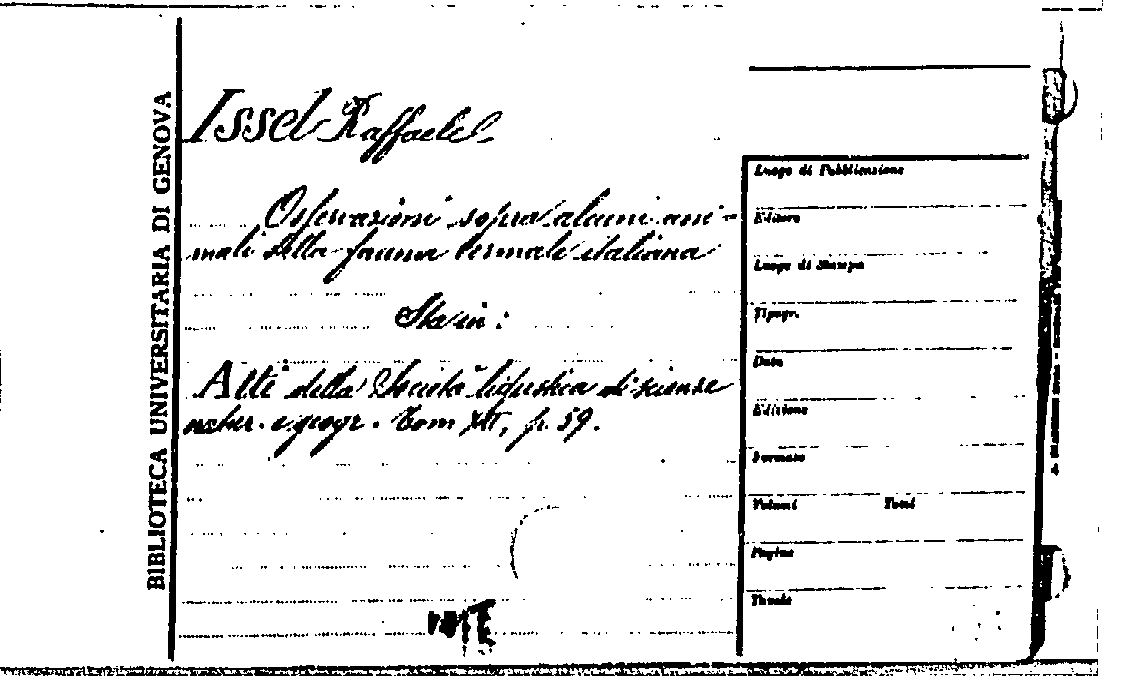 BIBLIOTECA UNIVERSITARIA DI GENOVA
Issel Raffaele
Osservazioni sopra alcuni ani-
mali della fauna termale italiana
Sta in:
Atti della Società ligustica di scienze
natur. e geogr. Tom XII, p. 59.
Luogo di Pubblicazione
Editore
Luogo di Stampa
Tipogr.
Data
Edizione
Formato
Volumi Tomi
Pagine
Tavole